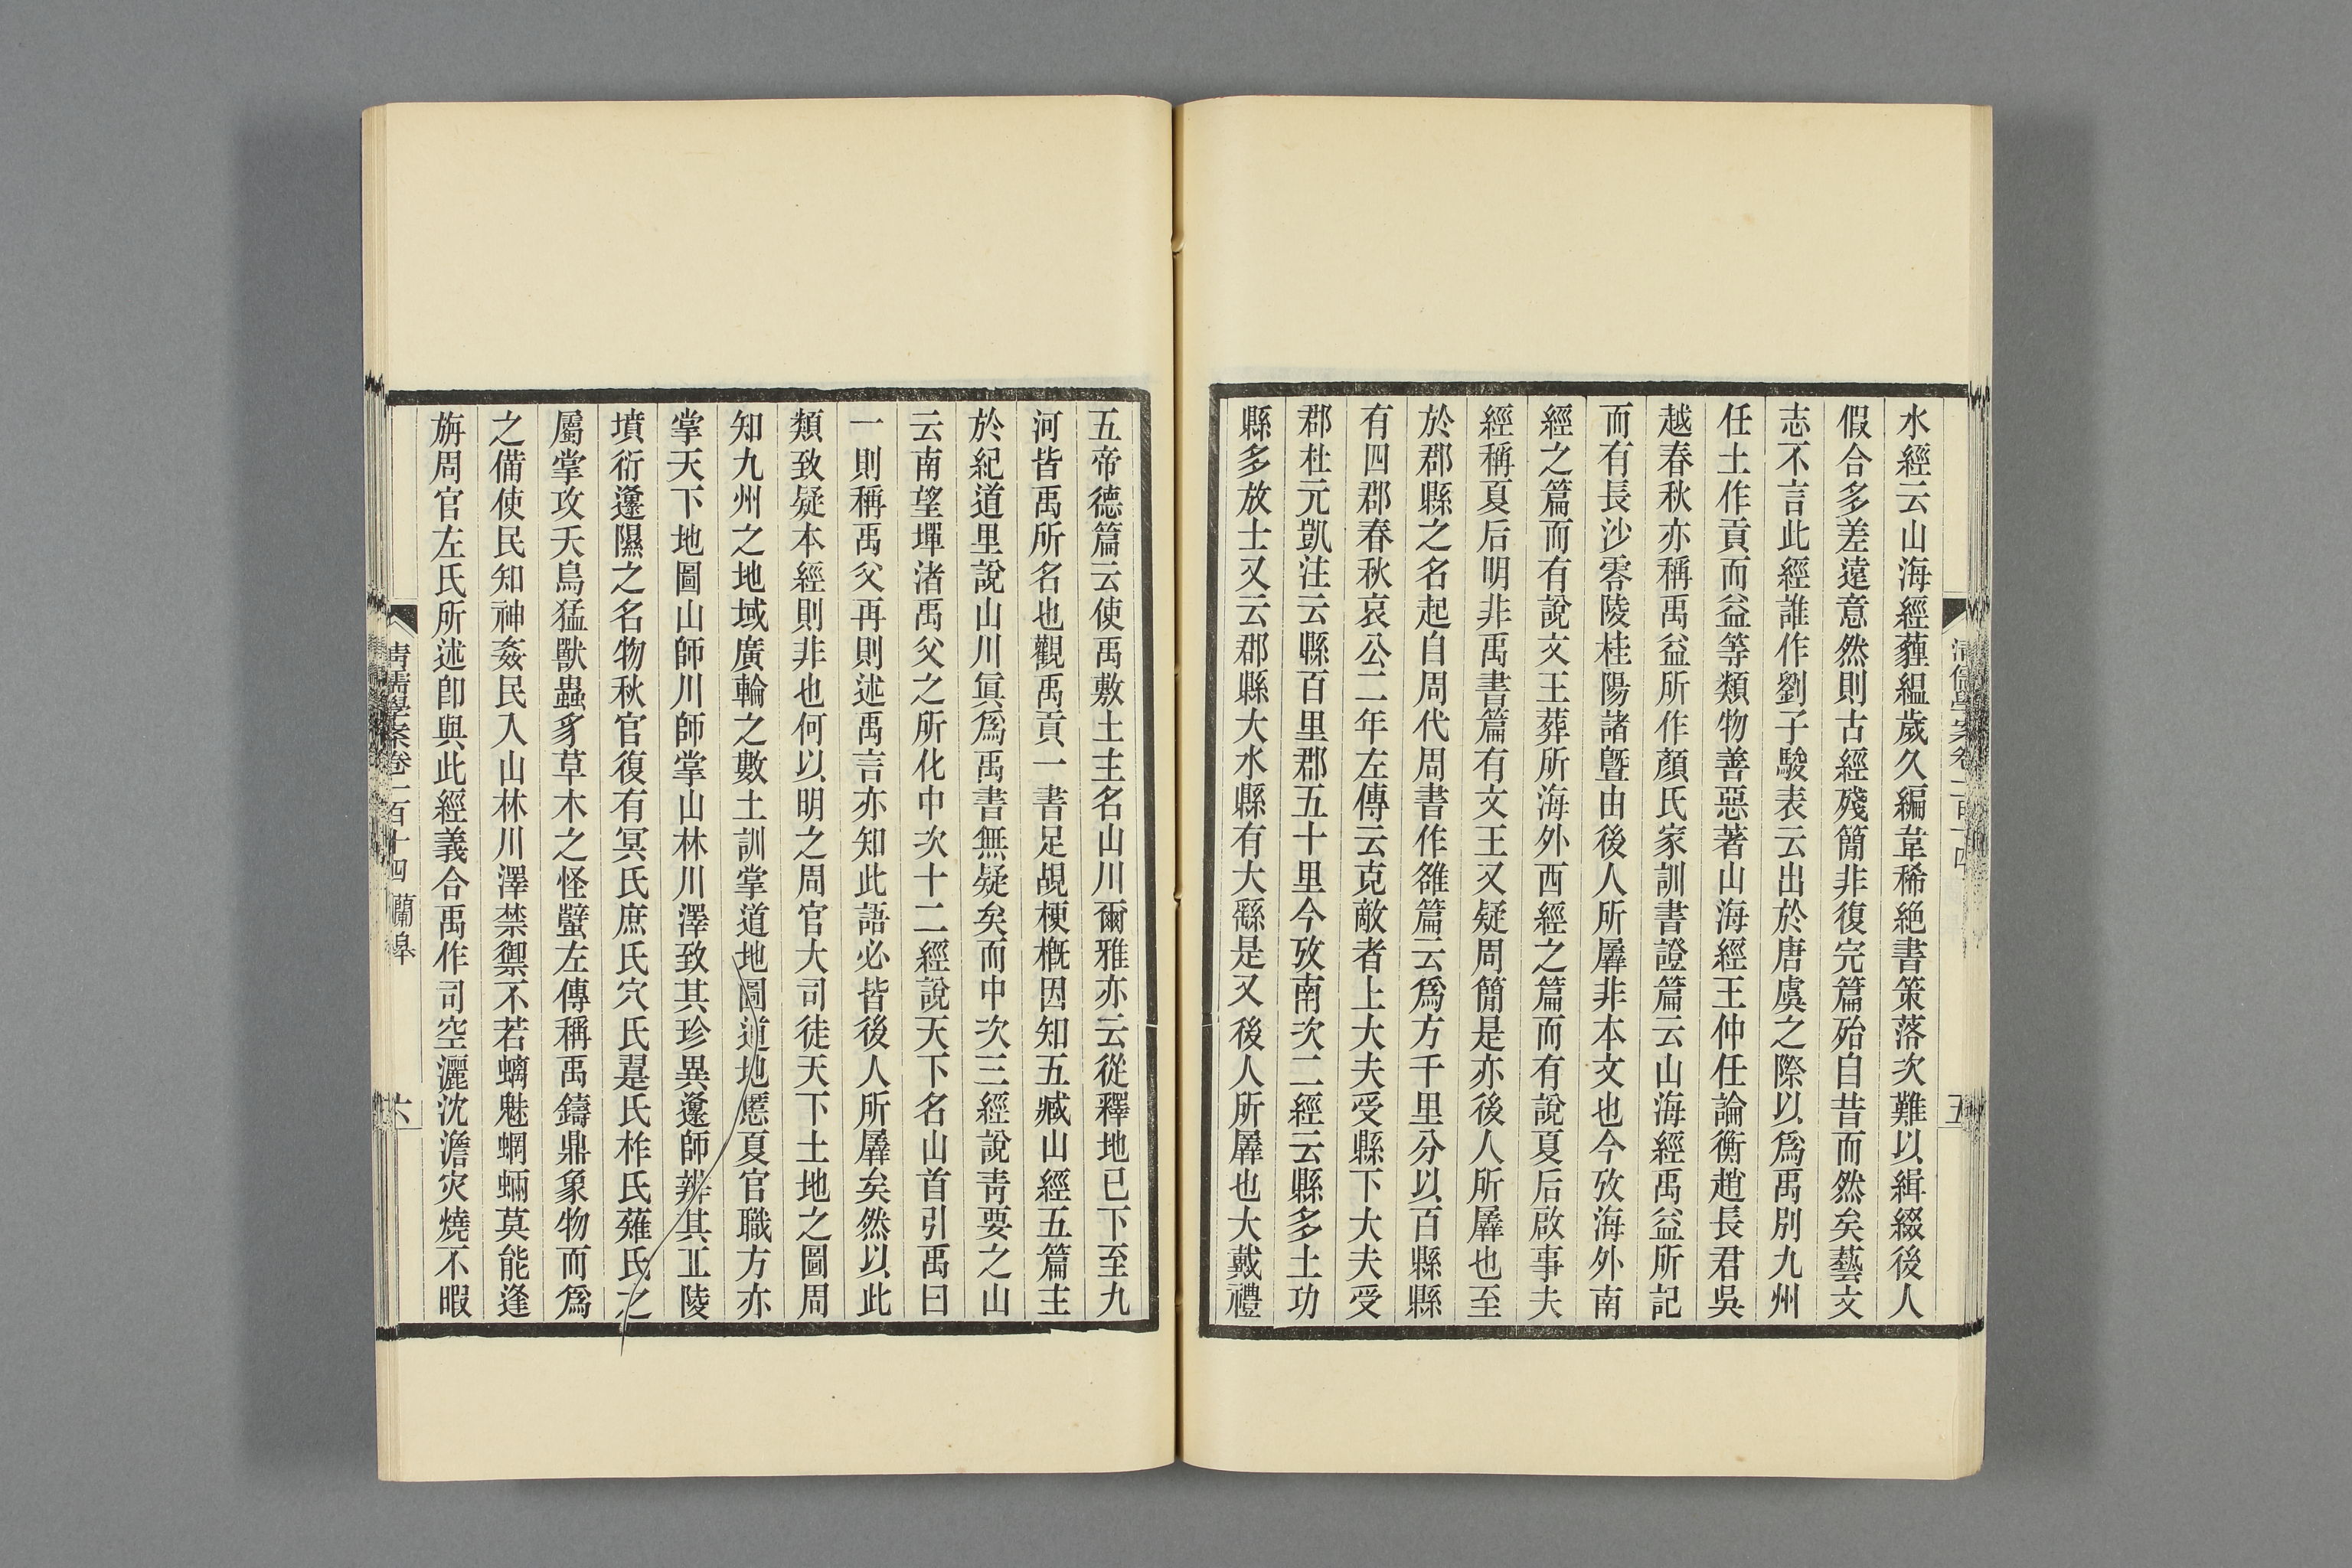 水經云山海經薶縕歲久編韋稀絶書策落次難以緝綴後人
假合多差遠意然則古經殘簡非復完篇殆自昔而然矣藝文
志不言此經誰作劉子駿表云出於唐虞之際以爲禹別九州
任土作貢而益等類物善惡著山海經王仲任論衡趙長君吳
越春秋亦稱禹益所作顏氏家訓書證篇云山海經禹益所記
而有長沙零陵桂陽諸曁由後人所羼非本文也今攷海外南
經之篇而有說文王葬所海外西經之篇而有說夏后啟事夫
經稱夏后明非禹書篇有文王又疑周簡是亦後人所羼也至
於郡縣之名起自周代周書作雒篇云爲方千里分以百縣縣
有四郡春秋哀公二年左傳云克敵者上大夫受縣下大夫受
郡杜元凱注云縣百里郡五十里今攷南次二經云縣多土功
縣多放士又云郡縣大水縣有大繇是又後人所羼也大戴禮
清儒學案卷一百十四
五
五帝德篇云使禹敷土主名山川爾雅亦云從釋地已下至九
河皆禹所名也觀禹貢一書足覘梗槪因知五臧山經五篇主
於紀道里說山川眞爲禹書無疑矣而中次三經說靑要之山
云南望墠渚禹父之所化中次十二經說天下名山首引禹曰
一則稱禹父再則述禹言亦知此語必皆後人所羼矣然以此
類致疑本經則非也何以明之周官大司徒天下土地之圖周
知九州之地域廣輪之數土訓掌道地圖道地慝夏官職方亦
掌天下地圖山師川師掌山林川澤致其珍異邍師辨其丘陵
墳衍邍隰之名物秋官復有冥氏庶氏穴氏翨氏柞氏薙氏之
屬掌攻夭鳥猛獸蟲豸草木之怪蠥左傳稱禹鑄鼎象物而爲
之備使民知神姦民入山林川澤禁禦不若螭魅蝄蜽莫能逢
旃周官左氏所述卽與此經義合禹作司空灑沈澹灾燒不暇
清儒學案卷一百十四 蘭皋
六